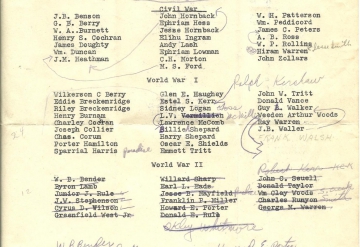 Civil War
J.B. Benson John Hornback W. H. Patterson
G. B. Berry Ephriam Hess Wm. Peddicord
W. A. Burnett Jesse Hornback James C. Peters
Henry S. Cochran Elihu Ingram A. B. Ross
James Doughty Andy Lash W. P. Rolling
Wm. Duncan Ephriam Lowman Hiram Warren
J.M. Heathman C.H. Morton John Zollars
M. S. Ford
World War I
Ralph Kershaw
Wilkerson C Berry Glen E. Haughey John W. Tritt
Eddie Breckenridge Estel S. Kern Donald Vance
Riley Breckenridge Sidney Logan Guy A. Walker
Henry Burnam L.V. Weedon Arthur Woods
Charley Cochran Lawrence McComb Ray Warren
Joseph Collier Billie Shepard J.B. Waller
Chas. Corum Harry Shepard
Porter Hamilton Oscar E. Shields
Sparrial Harris Emmett Tritt
World War II
W. B. Bender Willard Sharp John G. Sewell
Byron Lamb Earl L. Eads Donald Taylor
Junior J. Rule Jesse B. Mayfield Wm Clay Woods
J.W. Stephenson Franklin P. Miller Charles Runyon
Cyrus D. Wilson Howard E. Porter George M. Warren
Greenfield West Jr Donald H. Rule